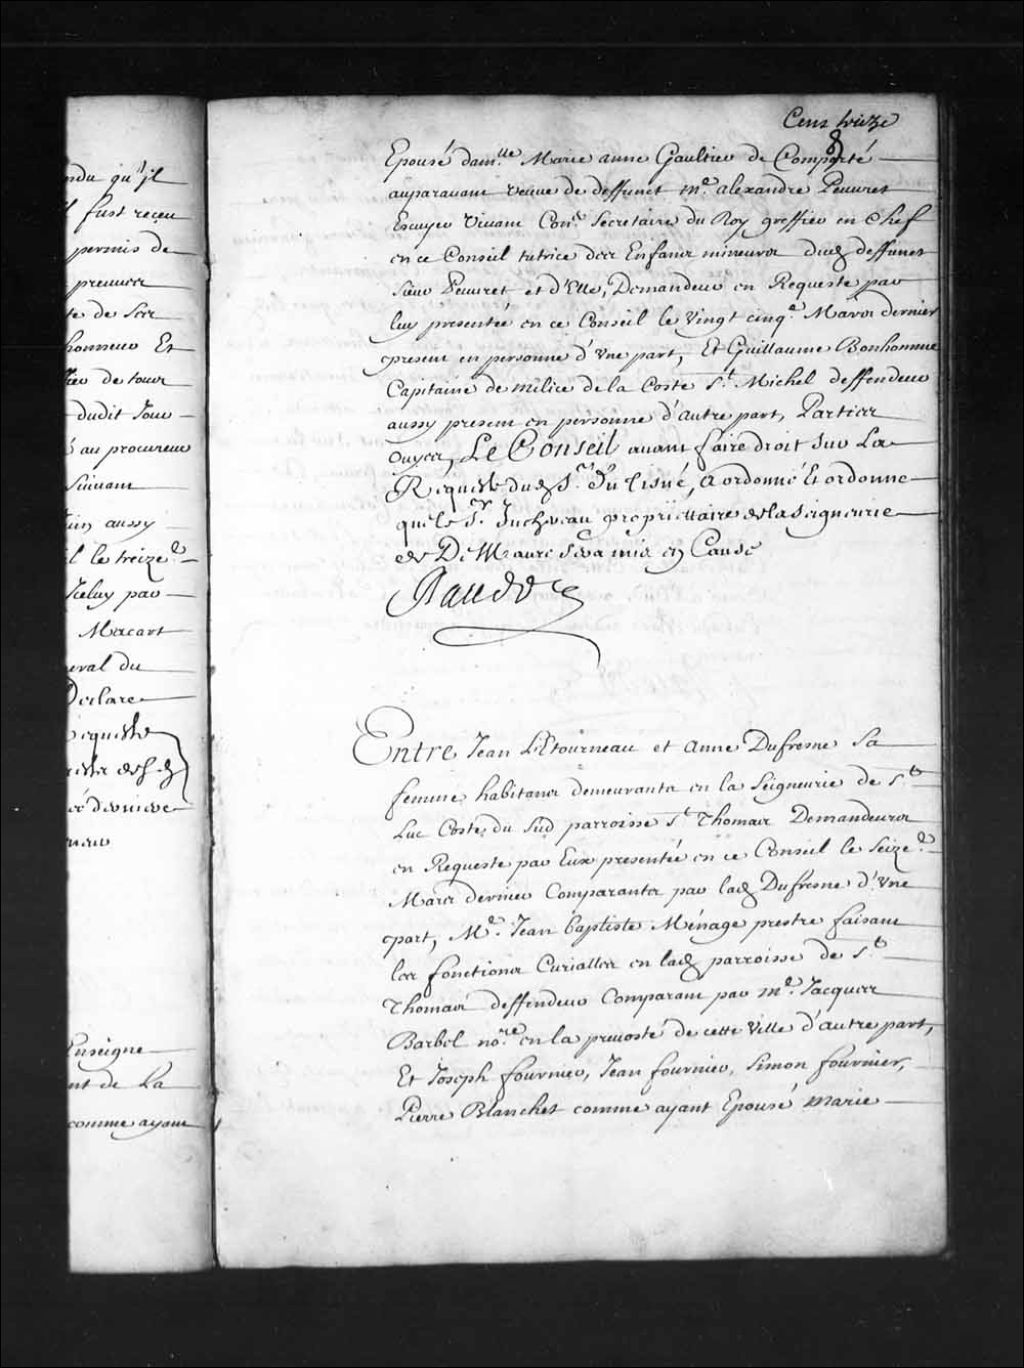 ndu qu'il
l fust receu
permis de
preuver
te de Ser
honneur Et
de tour
dudit Jour
au procureur
Suivant
aussy
il le treize.e
Iceluy par
Macart
eral du
Declare
equeste
comme ayant
Enseigne
nt de La
Cent treize
Epousé dam.lle Marie anne Gaultier de Comporté
auparavant veuve de deffunct M.e alexandre Peuvret
Escuyer Vivant Con.er Secretaire du Roy greffier en Chef
en ce Conseil tutrice des Enfans mineurs dud deffunct
Sieur Peuvret et d'Elle, Demandeur en Requeste par
luy presentée en ce Conseil le Vingt cinq.e Mars dernier
present en personne d'Une part, Et Guillaume Bonhomme
Capitaine de milice de la Coste S.t Michel deffendeur
aussy present en personne d'autre part, Parties
Ouyes, Le Conseil avant faire droit sur La
Requeste dud S.r Du Lisné, a ordonné Et ordonne
que le S.r Juchereau proprietaire de la seigneurie
de De Maure sera mis en Cause
Raudot
Entre Jean L'Etourneau et anne Dufresne Sa
femme habitans demeurants en la Seigneurie de S.t
Luc Coste du Sud parroisse S.t Thomas Demandeurs
en Requeste par Eux presentée en ce Conseil le Seize.e
Mars dernier Comparants par lad Dufresne d'Une
part, M.e Jean baptiste Ménage prestre faisant
les fonctions Curialles en lad parroisse de S.t
Thomas deffendeur Comparant par M.e Jacques
Barbel no.re en la prevosté de cette Ville d'autre part,
Et Joseph fournier, Jean fournier, Simon fournier,
Pierre Blanchet comme ayant Epousé Marie